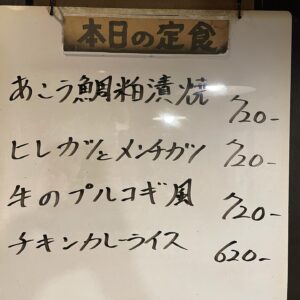 本日の定食
あこう鯛粕漬焼 720-
ヒレカツとメンチカツ 720-
牛のプルコギ風 720-
チキンカレーライス 620-